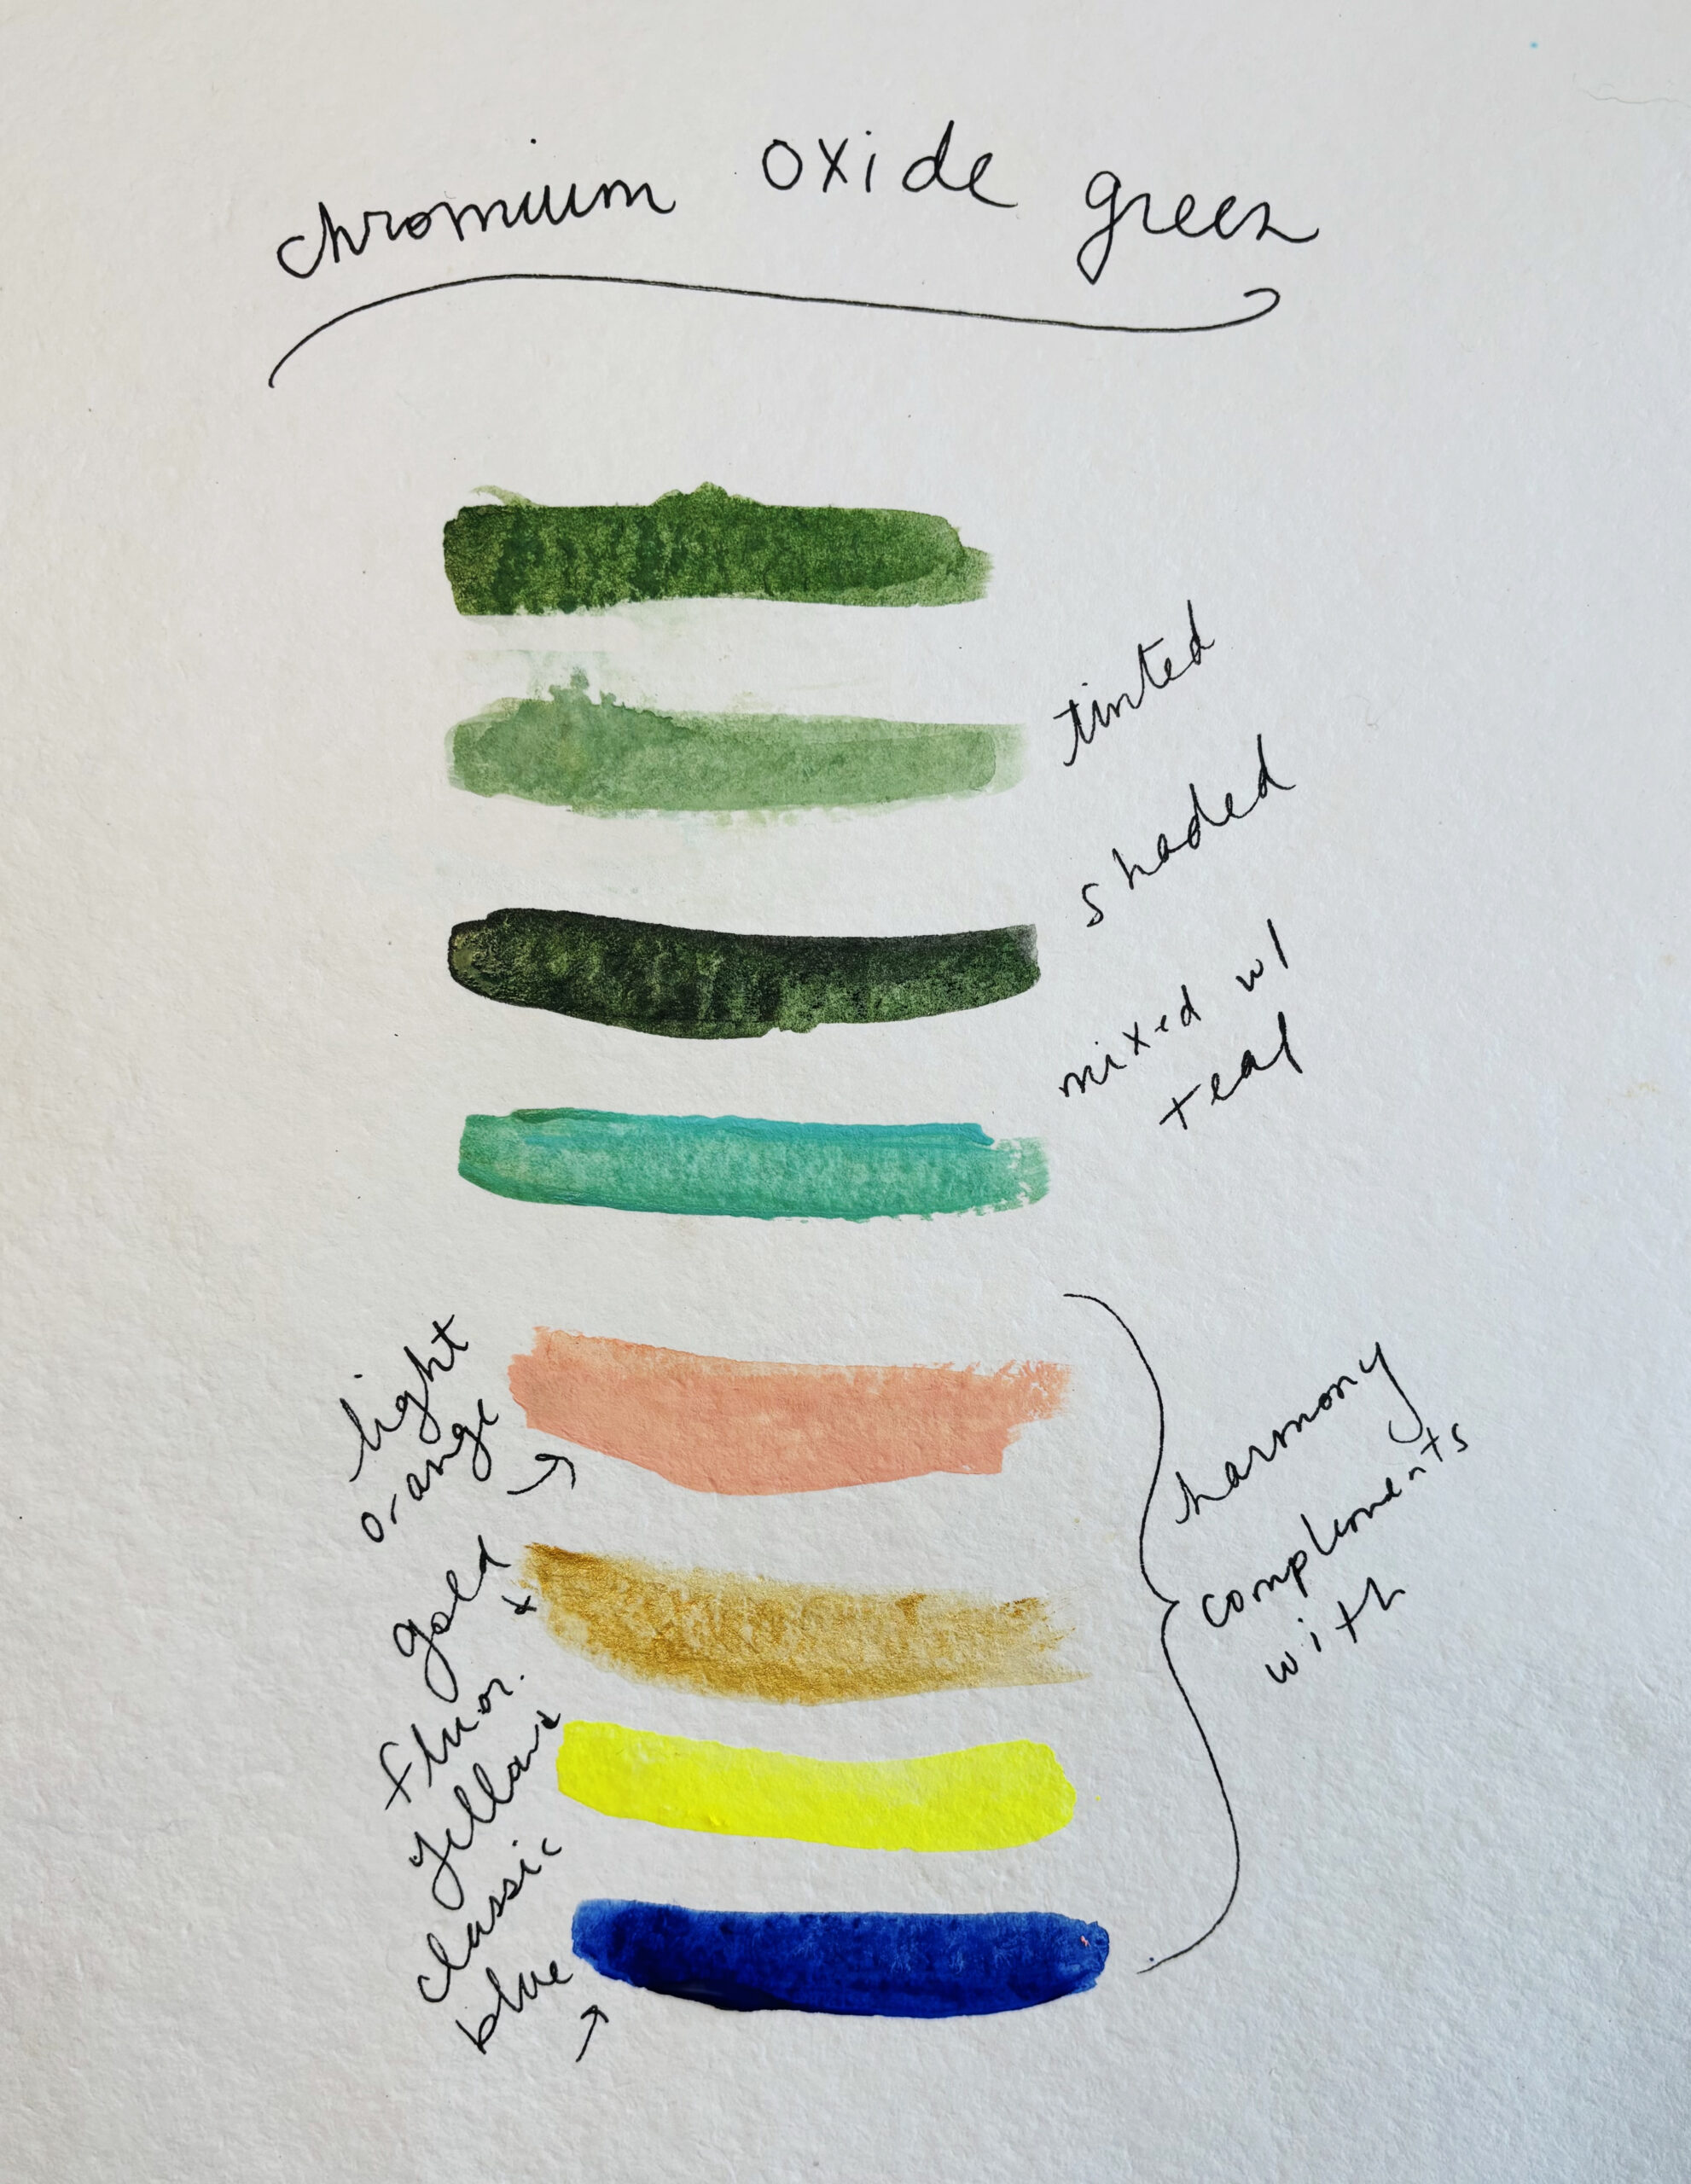 chromium oxide green
tinted
shaded
mixed w/
teal
light
orange
gold
fluor.
yellow
classic
blue
harmony
complements
with